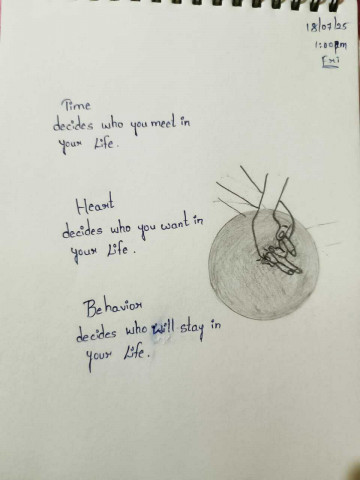 18/07/25
1:00pm
Fri
Time
decides who you meet in
your Life.
Heart
decides who you want in
your Life.
Behavior
decides who will stay in
your Life.